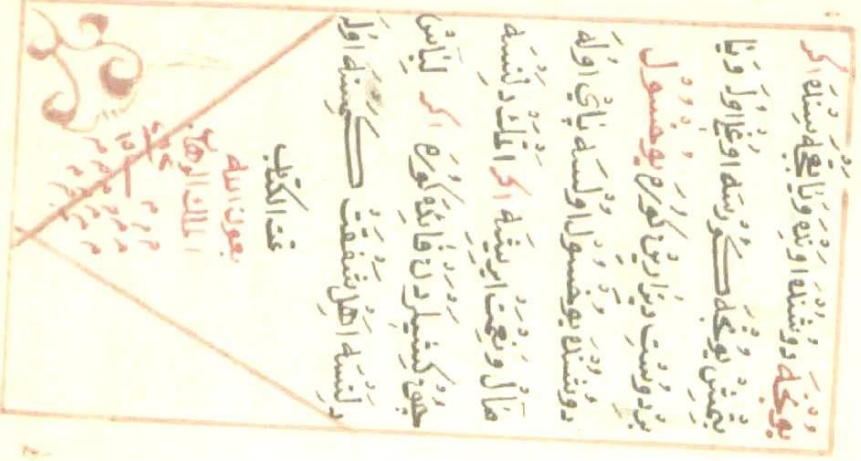 بونجه دوشنده اونده ویا بغچه سنده اكر
یمش بونجه كورسه اوغل اوله ویا
بر دوست دیزارین كوره بوجسول
دوشنده بوجسول اولسه بای اوله
مال و نعمت ایریشه اكر اتمك دلنسه
چوق كشیلردن فائده كوره اكر لباس
دلنسه اهل شفقت كمسنه اوله
تمت الكتاب
بعون الله
الملك الوهاب